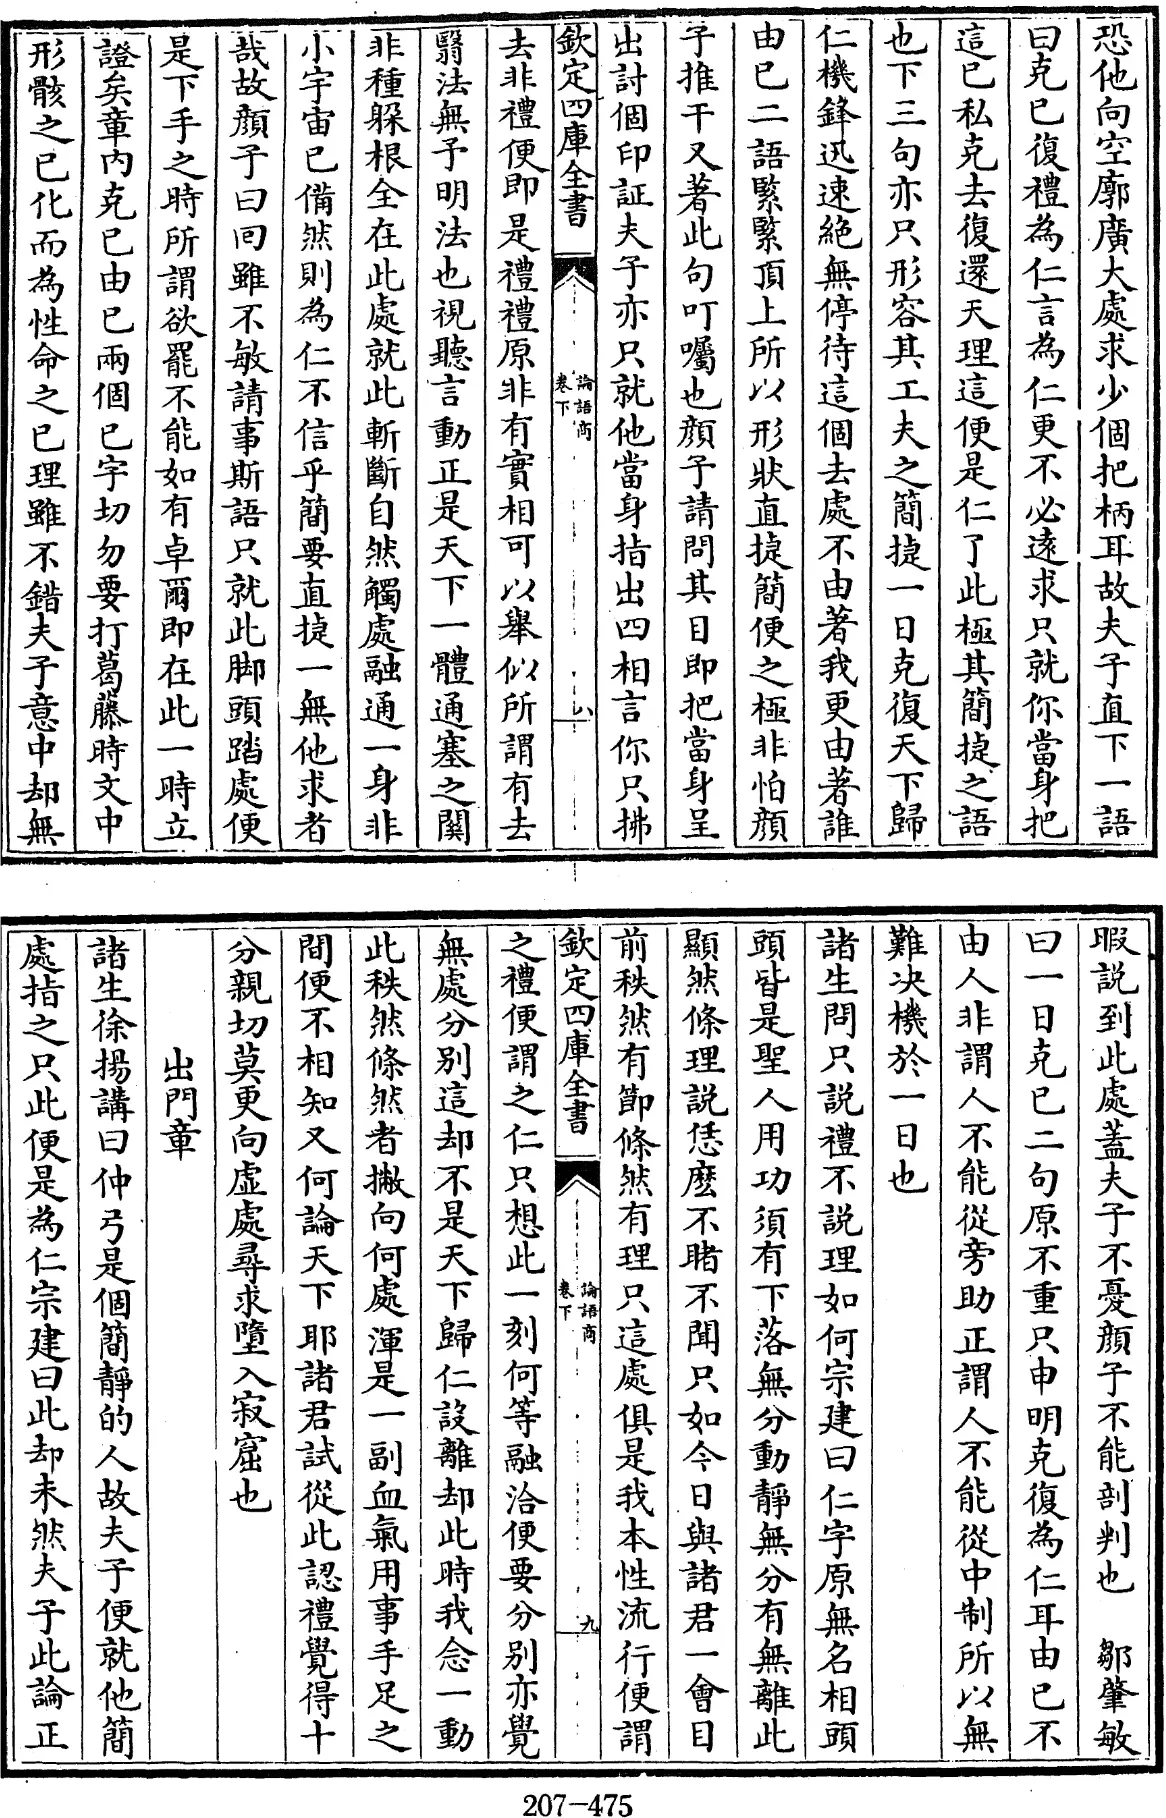 恐他向空廓廣大處求少個把柄耳故夫子直下一語
曰克己復禮為仁言為仁更不必逺求只就你當身把
這己私克去復還天理這便是仁了此極其簡捷之語
也下三句亦只形容其工夫之簡捷一日克復天下歸
仁機鋒迅速絶無停待這個去處不由著我更由著誰
由己二語緊緊頂上所以形狀直捷簡便之極非怕顔
子推干又著此句叮囑也顔子請問其目即把當身呈
出討個印証夫子亦只就他當身指出四相言你只拂
欽定四庫全書
論語商
卷下
八
去非禮便即是禮禮原非有實相可以舉似所謂有去
翳法無予明法也視聽言動正是天下一體通塞之關
非種躲根全在此處就此斬斷自然觸處融通一身非
小宇宙已備然則為仁不信乎簡要直捷一無他求者
哉故顔子曰囘雖不敏請事斯語只就此脚頭踏處便
是下手之時所謂欲罷不能如有卓爾即在此一時立
證矣章内克己由己兩個己字切勿要打葛藤時文中
形骸之己化而為性命之己理雖不錯夫子意中却無
暇説到此處蓋夫子不憂顔子不能剖判也　鄒肇敏
曰一日克己二句原不重只申明克復為仁耳由己不
由人非謂人不能從旁助正謂人不能從中制所以無
難决機於一日也
諸生問只說禮不說理如何宗建曰仁字原無名相頭
頭皆是聖人用功須有下落無分動靜無分有無離此
顯然條理說恁麽不睹不聞只如今日與諸君一會目
前秩然有節條然有理只這處俱是我本性流行便謂
欽定四庫全書
論語商
卷下
九
之禮便謂之仁只想此一刻何等融洽便要分別亦覺
無處分別這却不是天下歸仁設離却此時我念一動
此秩然條然者撇向何處渾是一副血氣用事手足之
間便不相知又何論天下耶諸君試從此認禮覺得十
分親切莫更向虚處尋求墮入寂窟也
出門章
諸生徐揚講曰仲弓是個簡靜的人故夫子便就他簡
處指之只此便是為仁宗建曰此却未然夫子此論正
207-475